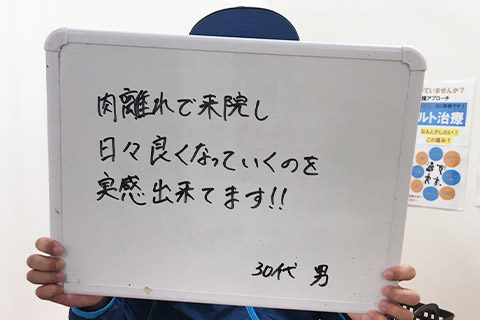 肉離れで来院し
日々良くなっていくのを
実感出来てます!!
30代 男
ていませんか?
種アプローチ
ルト治療
なんとかしたい!
この痛み!